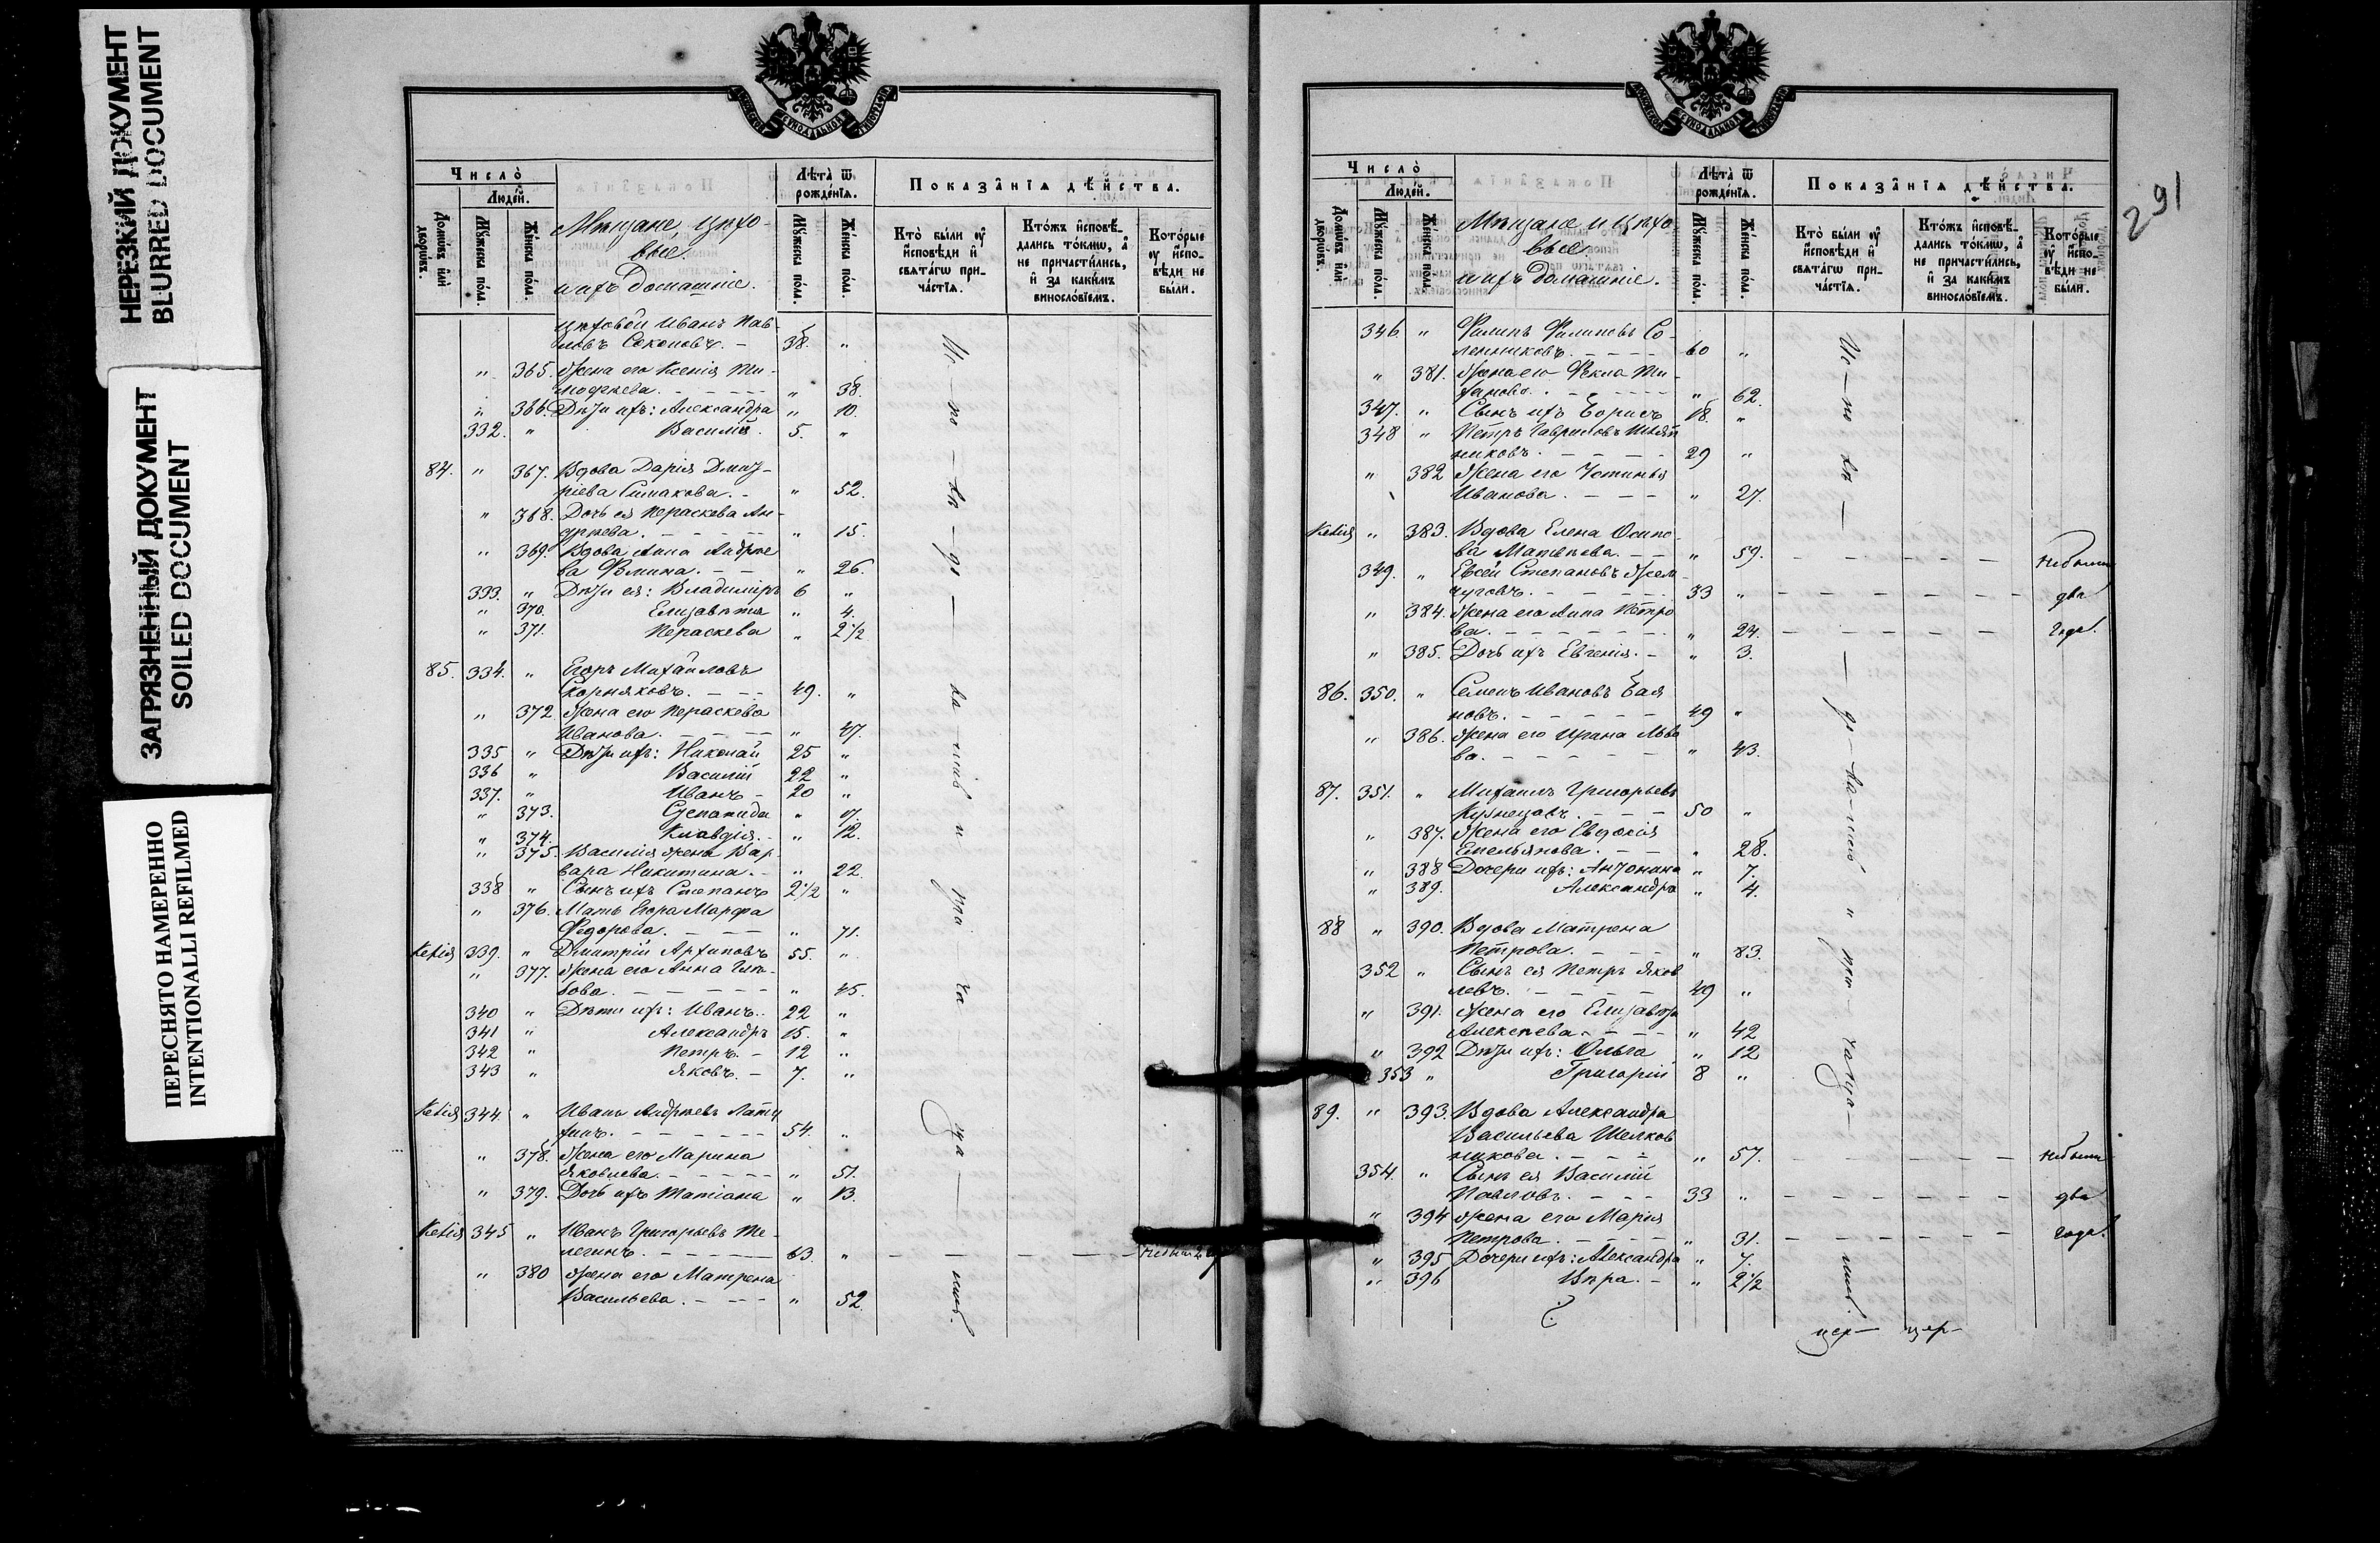 НЕРЕЗКИЙ ДОКУМЕНТ
BLURRED DOCUMENT
ЗАГРЯЗНЕННЫЙ ДОКУМЕНТ
SOILED DOCUMENT
ПЕРЕСНЯТО НАМЕРЕННО
INTENTIONALLI REFILMED
Число̀
Людéй.
Домѡвъ и҆лѝ дворѡвъ.
Мꙋжеска по́ла.
Же́нска по́ла.
Мѣщане, цѣхо-
вые
и ихъ домашніе.
Лѣта̀ ѿ рожде́нїѧ.
Мꙋжеска по́ла.
Же́нска по́ла.
Показа̂нїѧ дѣ́йства.
Кто̀ бы́ли ᲂу҆ и҆́сповѣди и҆ свѧта́гѡ прича́стїѧ.
Кто́жъ и҆сповѣ́дались то́кмѡ, а҆ не причасти́лись, и҆ за каки́мъ виносло́вїемъ.
Кото́рые ᲂу҆ и҆́сповѣди не бы́ли.
цѣховой Иванъ Пав-
ловъ Соколовъ. - 38. "
" 365. Жена его Ксенія Ти-
мофѣева. " 38.
" 366. Дѣти ихъ: Александра " 10.
332. " Василій. 5. "
84. " 367. Вдова Дарія Дмит-
ріева Симакова. - " 52.
" 368. Дочь ея Параскева Ан-
дреева. " 15.
" 369. Вдова Анна Андрее
ва Ѳомина. " 26.
333. " Дѣти ея: Владиміръ 6 "
" 370. Елизавета " 4.
" 371. Параскева " 2½
85. 334. " Егоръ Михайловъ
Скорняковъ. 49. "
" 372. Жена его Параскева
Иванова. " 47.
335 " Дѣти ихъ: Николай 25 "
336 " Василій 22 "
337. " Иванъ - 20 "
" 373. Степанида "
" 374. Клавдія. " 12.
" 375. Василія жена Вар-
вара Никитина. " 22.
338 " Сынъ ихъ Степанъ 2½ "
" 376. Мать Егора Марфа
Ѳедорова. " 71.
339. " Дмитрій Архиповъ 55. "
" 377. Жена его Анна Глѣ-
бова. " 45.
340 " Дѣти ихъ: Иванъ. 22 "
341 " Александръ 15. "
342 " Петръ. - 12 "
343 " Яковъ. - 7. "
344. " Иванъ Андреевъ
54. "
" 378. Жена его Марина
Яковлева. " 51.
" 379. Дочь ихъ Татіана " 13.
345 " Иванъ Григорьевъ Те-
легинъ. 63. "
" 380 Жена его Матрена
Васильева. " 52.
Ис - по - вѣ - до - ва - лись и при - ча - ща - лись.
291
Число̀
Людéй.
Домѡвъ и҆лѝ дворѡвъ.
Мꙋжеска по́ла.
Же́нска по́ла.
Мѣщане и цѣхо
вые
и ихъ домашніе.
Лѣта̀ ѿ рожде́нїѧ.
Мꙋжеска по́ла.
Же́нска по́ла.
Показа̂нїѧ дѣ́йства.
Кто̀ бы́ли ᲂу҆ и҆́сповѣди и҆ свѧта́гѡ прича́стїѧ.
Кто́жъ и҆сповѣ́дались то́кмѡ, а҆ не причасти́лись, и҆ за каки́мъ виносло́вїемъ.
Кото́рые ᲂу҆ и҆́сповѣди не бы́ли.
346. " Филипъ Филиповъ Со-
ленниковъ. 60 "
" 381. Жена его Ѳекла Ти-
ханова. " 62.
347. " Сынъ ихъ Борисъ 18. "
348 " Петръ Гавриловъ
никовъ. 29 "
" 382 Жена его Устинья
Иванова. " 27.
" 383. Вдова Елена Осипо-
ва Матвѣева. " 59. не были
349. " Евсей Степановъ Жем-
чуговъ. 33 " два
" 384. Жена его Анна Петро
ва. " 24. года.
" 385. Дочь ихъ Евгенія. - " 3.
86. 350. " Семенъ Ивановъ Бая
новъ. 49 "
" 386. Жена его Ирина Льво
ва. " 43.
87. 351. " Михаилъ Григорьевъ
Кузнецовъ. 50 "
" 387. Жена его Евдокія
Емельянова. " 28.
" 388 Дочери ихъ: Антонина " 7.
" 389. Александра " 4.
88 " 390. Вдова Матрена
Петрова. " 83.
352 " Сынъ ея Петръ Яков
левъ. 49 "
" 391. Жена его Елизавета
Алексеева. " 42
" 392 Дѣти ихъ: Ольга " 12
353 " Григорій 8 "
89. " 393. Вдова Александра
Васильева Шелков
никова. " 57. не были
354. " Сынъ ея Василій
Павловъ. 33 " два
" 394 Жена его Марія
Петрова. " 31. года.
" 395 Дочери ихъ: Александра " 7.
" 396 Вѣра. - " 2½
Ис - по - вѣ - до - ва - лись и при - чаща - лись.